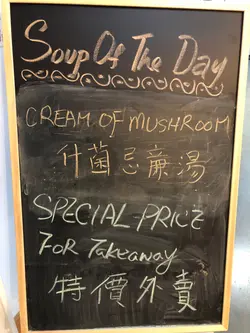 Soup Of The Day
CREAM OF MUSHROOM
什菌忌廉湯
SPECIAL PRICE
FOR Takeaway
特價外賣